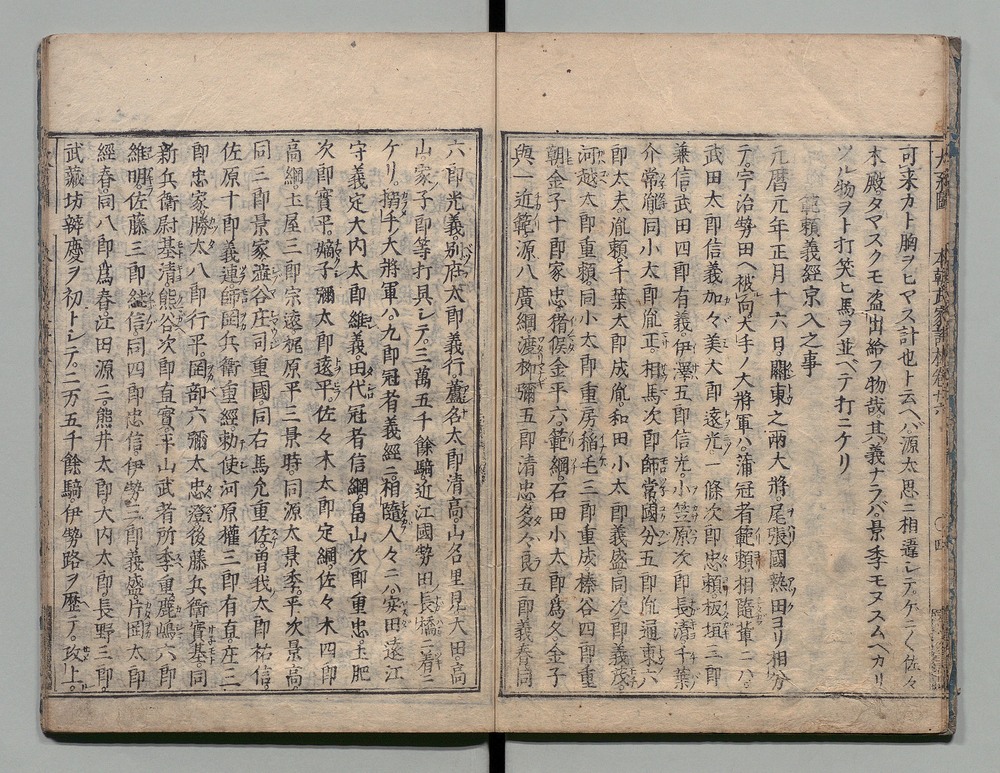 可来カト胸ヲヒマス計也ト云ヘバ源太思ニ相違シテゲニ〱佐々
木殿タマスクモ盗出給フ物哉其義ナラバ景季モヌスムヘカリ
ツル物ヲト打笑ヒ馬ヲ並ベテ打ニケリ
範頼義経京入之事
元暦元年正月十六日。關東之兩大將。尾張國熱田ヨリ相分
テ。宇治勢田ヘ被向大手ノ大將軍ハ。蒲冠者範頼相隨輩ニハ。
武田太郎信義加々美太郎遠光。一條次郎忠頼板垣三郎
兼信武田四郎有義。伊澤五郎信光。小笠原次郎長清千葉
介常胤。同小太郎胤正。相馬次郎師常國分五郎胤通東六
郎大夫胤頼。千葉太郎成胤。和田小太郎義盛同次郎義茂。
河越太郎重頼。同小太郎重房稲毛三郎重成榛谷四郎重
朝金子十郎家忠。猪俣金平六。範綱。石田小太郎爲久。金子
與一近範源八廣綱。渡柳彌五郎清忠多々良五郎義春同
六郎光義別府太郎義行蘆名太郎清高。山名里見大田高
山。家ノ子郎等打具シテ。三萬五千餘騎。近江國勢田長橋ニ着ニ
ケリ。搦手ノ大將軍ハ。九郎冠者義經ニ。相隨人々ニハ。安田遠江
守義定大内太郎維義。田代冠者信綱。畠山次郎重忠土肥
次郎實平。嫡子彌太郎遠平。佐々木太郎定綱。佐々木四郎
高綱。土屋三郎宗遠梶原平三景時。同源太景季。平次景高
同三郎景家澁谷庄司重國。同右馬允重佐曽我太郎祐信。
佐原十郎義連師岡兵衛重經勅使河原權三郎有直庄三
郎忠家勝大八郎行平。岡部六彌太忠澄。後藤兵衛實基。同
新兵衛尉基清。熊谷次郎直實。平山武者所季重。鹿嶋六郎
維明。佐藤三郎継信。同四郎忠信。伊勢三郎義盛。片岡太郎
經春。同八郎爲春。江田源三。熊井太郎大内太郎。長野三郎。
武藏坊辨慶ヲ初トシテ。二万五千餘騎。伊勢路ヲ歴テ。攻上。